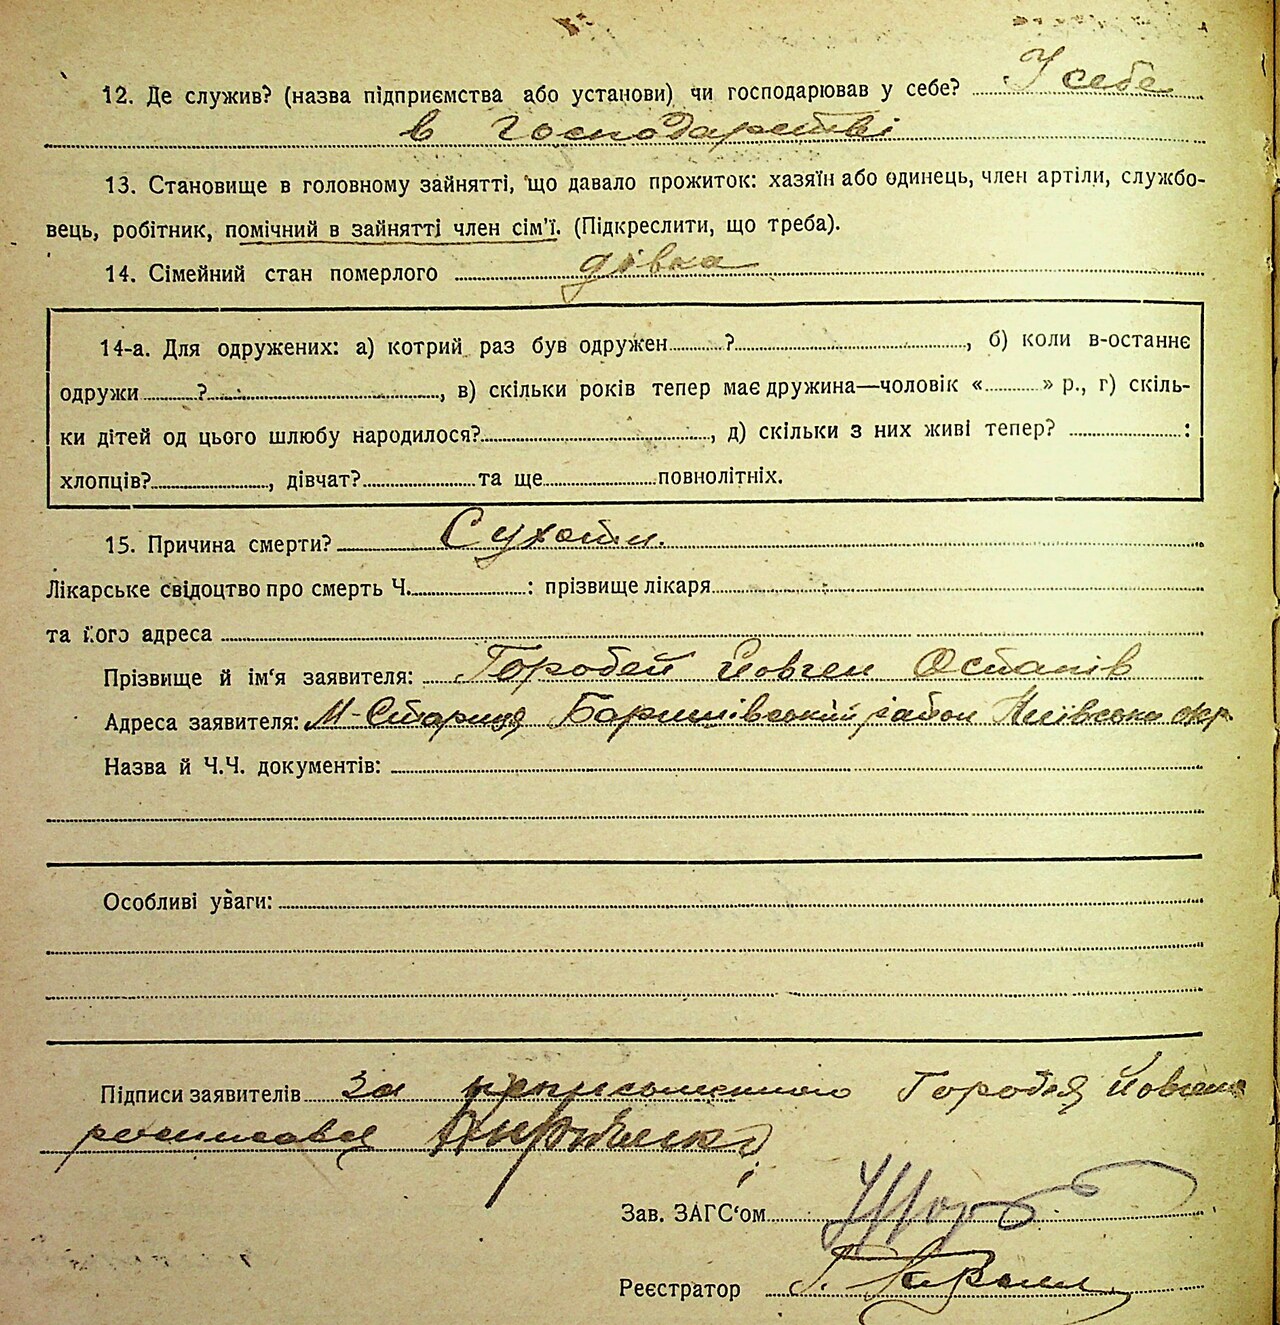 12. Де служив? (назва підприємства або установи) чи господарював у себе? У себе
в господарстві
13. Становище в головному зайнятті, що давало прожиток: хазяїн або одинець, член артіли, службо-
вець, робітник, помічний в зайнятті член сім'ї. (Підкреслити, що треба).
14. Сімейний стан померлого дівка
14-а. Для одружених: а) котрий раз був одружен ? , б) коли в-останнє
одружи ? , в) скільки років тепер має дружина—чоловік « » р., г) скіль-
ки дітей од цього шлюбу народилося? , д) скільки з них живі тепер? :
хлопців? , дівчат? та ще повнолітніх.
15. Причина смерти? Сухоти.
Лікарське свідоцтво про смерть Ч. : прізвище лікаря
та його адреса
Прізвище й ім'я заявителя: Горобей Йовген Остапів
Адреса заявителя: М-Стариця Баришівський район Київськ окр.
Назва й Ч.Ч. документів:
Особливі уваги:
Підписи заявителів За неписьменного Горобея Йовгена
росписався
Зав. ЗАГС'ом
Реєстратор